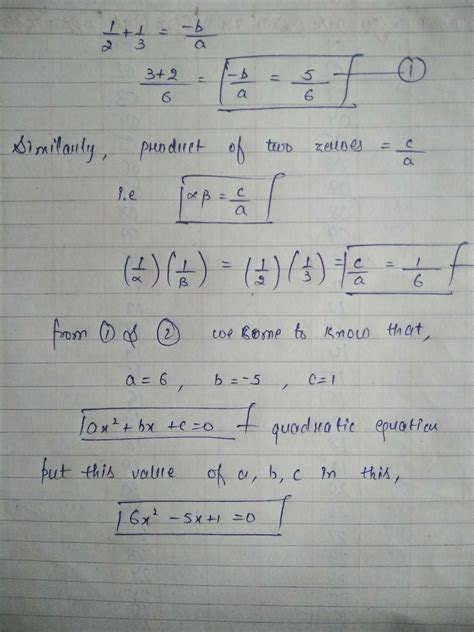 1/2 + 1/3 = -b/a
3+2/6 = -b/a = 5/6 ①
Similarly, product of two zeroes = c/a
i.e αβ = c/a
(1/α)(1/β) = (1/2)(1/3) = c/a = 1/6
from ① & ② we come to know that,
a=6 , b=-5 , c=1
ax² + bx + c=0 quadratic equation
put this value of a, b, c in this,
6x² -5x+1 =0